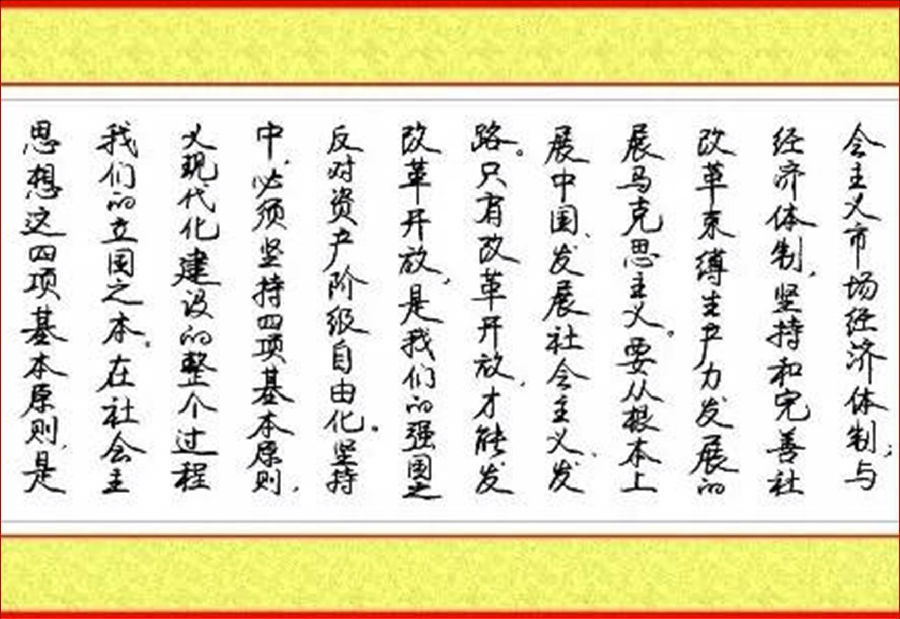 思想这四项基本原则,是
我们的立国之本。在社会主
义现代化建设的整个过程
中,必须坚持四项基本原则,
反对资产阶级自由化。坚持
改革开放,是我们的强国之
路。只有改革开放,才能发
展中国、发展社会主义、发
展马克思主义。要从根本上
改革束缚生产力发展的
经济体制,坚持和完善社
会主义市场经济体制;与